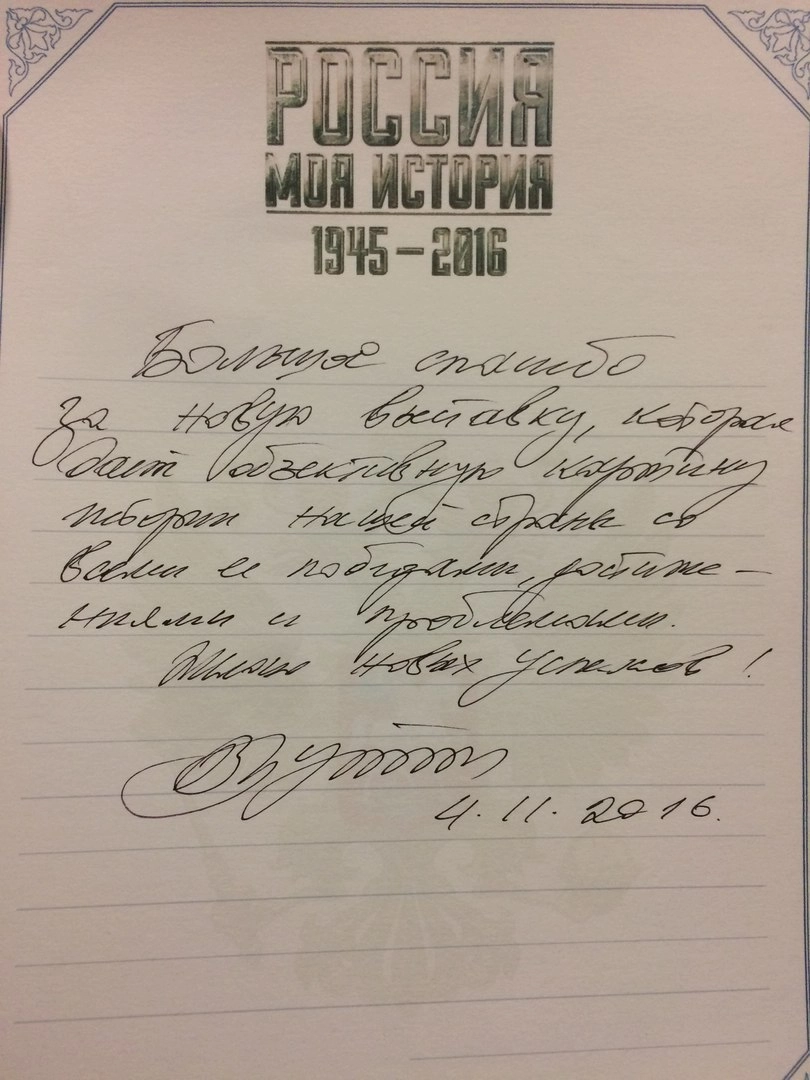 РОССИЯ
МОЯ ИСТОРИЯ
1945–2016
Большое спасибо
за новую выставку, которая
дает объективную картину
истории нашей страны со
всеми ее победами, достиже-
ниями и проблемами.
Желаю новых успехов!
В Путин
4.11.2016.